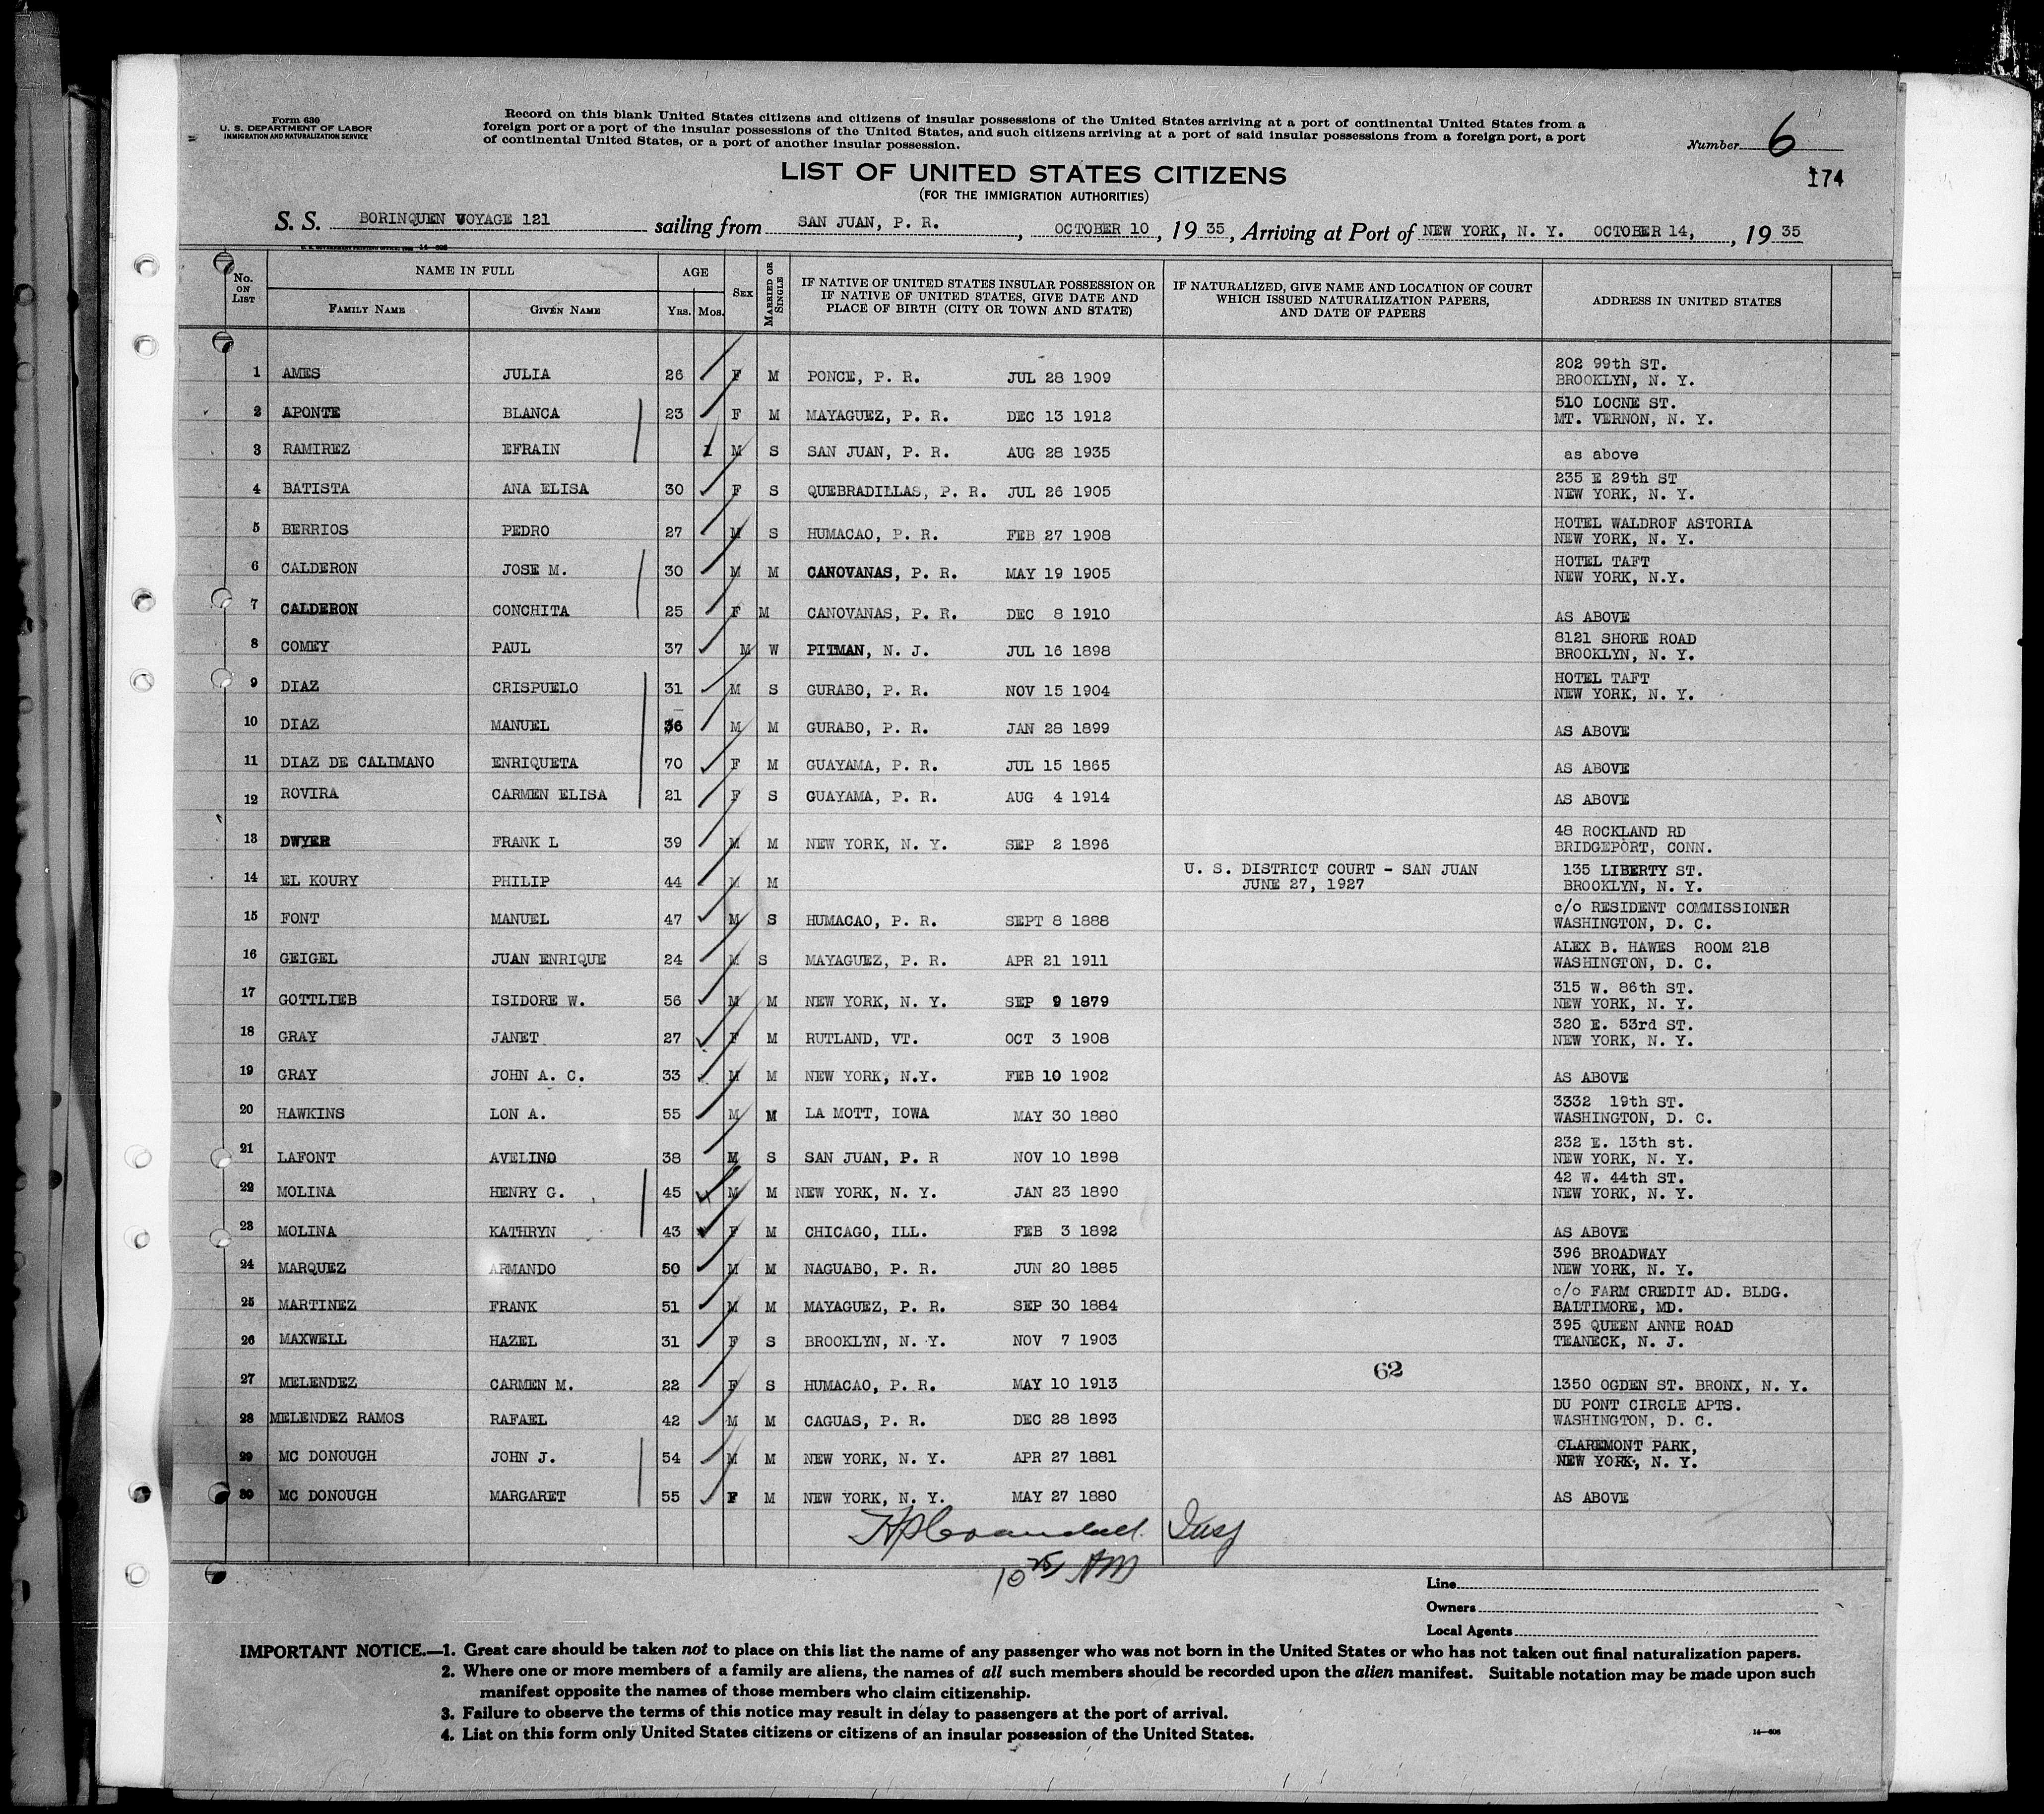 Form 630
U. S. DEPARTMENT OF LABOR
IMMIGRATION AND NATURALIZATION SERVICE
Record on this blank United States citizens and citizens of insular possessions of the United States arriving at a port of continental United States from a
foreign port or a port of the insular possessions of the United States, and such citizens arriving at a port of said insular possessions from a foreign port, a port
of continental United States, or a port of another insular possession.
Number 6
174
LIST OF UNITED STATES CITIZENS
(FOR THE IMMIGRATION AUTHORITIES)
S. S. BORINQUEN VOYAGE 121 sailing from SAN JUAN, P. R., OCTOBER 10, 19 35, Arriving at Port of NEW YORK, N. Y. OCTOBER 14, , 19 35
No. ON LIST
NAME IN FULL
FAMILY NAME GIVEN NAME
AGE
YRS. MOS.
SEX
MARRIED OR SINGLE
IF NATIVE OF UNITED STATES INSULAR POSSESSION OR
IF NATIVE OF UNITED STATES, GIVE DATE AND
PLACE OF BIRTH (CITY OR TOWN AND STATE)
IF NATURALIZED, GIVE NAME AND LOCATION OF COURT
WHICH ISSUED NATURALIZATION PAPERS,
AND DATE OF PAPERS
ADDRESS IN UNITED STATES
1 AMES JULIA 26 F M PONCE, P. R. JUL 28 1909 202 99th ST.
BROOKLYN, N. Y.
2 APONTE BLANCA 23 F M MAYAGUEZ, P. R. DEC 13 1912 510 LOCNE ST.
MT. VERNON, N. Y.
3 RAMIREZ EFRAIN 1 M S SAN JUAN, P. R. AUG 28 1935 as above
4 BATISTA ANA ELISA 30 F S QUEBRADILLAS, P. R. JUL 26 1905 235 E 29th ST
NEW YORK, N. Y.
5 BERRIOS PEDRO 27 M S HUMACAO, P. R. FEB 27 1908 HOTEL WALDROF ASTORIA
NEW YORK, N. Y.
6 CALDERON JOSE M. 30 M M CANOVANAS, P. R. MAY 19 1905 HOTEL TAFT
NEW YORK, N.Y.
7 CALDERON CONCHITA 25 F M CANOVANAS, P. R. DEC 8 1910 AS ABOVE
8 COMEY PAUL 37 M W PITMAN, N. J. JUL 16 1898 8121 SHORE ROAD
BROOKLYN, N. Y.
9 DIAZ CRISPUELO 31 M S GURABO, P. R. NOV 15 1904 HOTEL TAFT
NEW YORK, N. Y.
10 DIAZ MANUEL 36 M M GURABO, P. R. JAN 28 1899 AS ABOVE
11 DIAZ DE CALIMANO ENRIQUETA 70 F M GUAYAMA, P. R. JUL 15 1865 AS ABOVE
12 ROVIRA CARMEN ELISA 21 F S GUAYAMA, P. R. AUG 4 1914 AS ABOVE
13 DWYER FRANK L 39 M M NEW YORK, N. Y. SEP 2 1896 48 ROCKLAND RD
BRIDGEPORT, CONN.
14 EL KOURY PHILIP 44 M M U. S. DISTRICT COURT - SAN JUAN 135 LIBERTY ST.
JUNE 27, 1927 BROOKLYN, N. Y.
15 FONT MANUEL 47 M S HUMACAO, P. R. SEPT 8 1888 c/o RESIDENT COMMISSIONER
WASHINGTON, D. C.
16 GEIGEL JUAN ENRIQUE 24 M S MAYAGUEZ, P. R. APR 21 1911 ALEX B. HAWES ROOM 218
WASHINGTON, D. C.
17 GOTTLIEB ISIDORE W. 56 M M NEW YORK, N. Y. SEP 9 1879 315 W. 86th ST.
NEW YORK, N. Y.
18 GRAY JANET 27 F M RUTLAND, VT. OCT 3 1908 320 E. 53rd ST.
NEW YORK, N. Y.
19 GRAY JOHN A. C. 33 M M NEW YORK, N.Y. FEB 10 1902 AS ABOVE
20 HAWKINS LON A. 55 M M LA MOTT, IOWA MAY 30 1880 3332 19th ST.
WASHINGTON, D. C.
21 LAFONT AVELINO 38 M S SAN JUAN, P. R NOV 10 1898 232 E. 13th st.
NEW YORK, N. Y.
22 MOLINA HENRY G. 45 M M NEW YORK, N. Y. JAN 23 1890 42 W. 44th ST.
NEW YORK, N. Y.
23 MOLINA KATHRYN 43 F M CHICAGO, ILL. FEB 3 1892 AS ABOVE
24 MARQUEZ ARMANDO 50 M M NAGUABO, P. R. JUN 20 1885 396 BROADWAY
NEW YORK, N. Y.
25 MARTINEZ FRANK 51 M M MAYAGUEZ, P. R. SEP 30 1884 c/o FARM CREDIT AD. BLDG.
BALTIMORE, MD.
26 MAXWELL HAZEL 31 F S BROOKLYN, N. Y. NOV 7 1903 395 QUEEN ANNE ROAD
TEANECK, N. J.
62
27 MELENDEZ CARMEN M. 22 F S HUMACAO, P. R. MAY 10 1913 1350 OGDEN ST. BRONX, N. Y.
28 MELENDEZ RAMOS RAFAEL 42 M M CAGUAS, P. R. DEC 28 1893 DU PONT CIRCLE APTS.
WASHINGTON, D. C.
29 MC DONOUGH JOHN J. 54 M M NEW YORK, N. Y. APR 27 1881 CLAREMONT PARK,
NEW YORK, N. Y.
30 MC DONOUGH MARGARET 55 F M NEW YORK, N. Y. MAY 27 1880 AS ABOVE
Insp
10 25 AM
Line
Owners
Local Agents
IMPORTANT NOTICE.—1. Great care should be taken not to place on this list the name of any passenger who was not born in the United States or who has not taken out final naturalization papers.
2. Where one or more members of a family are aliens, the names of all such members should be recorded upon the alien manifest. Suitable notation may be made upon such
manifest opposite the names of those members who claim citizenship.
3. Failure to observe the terms of this notice may result in delay to passengers at the port of arrival.
4. List on this form only United States citizens or citizens of an insular possession of the United States.
14—608